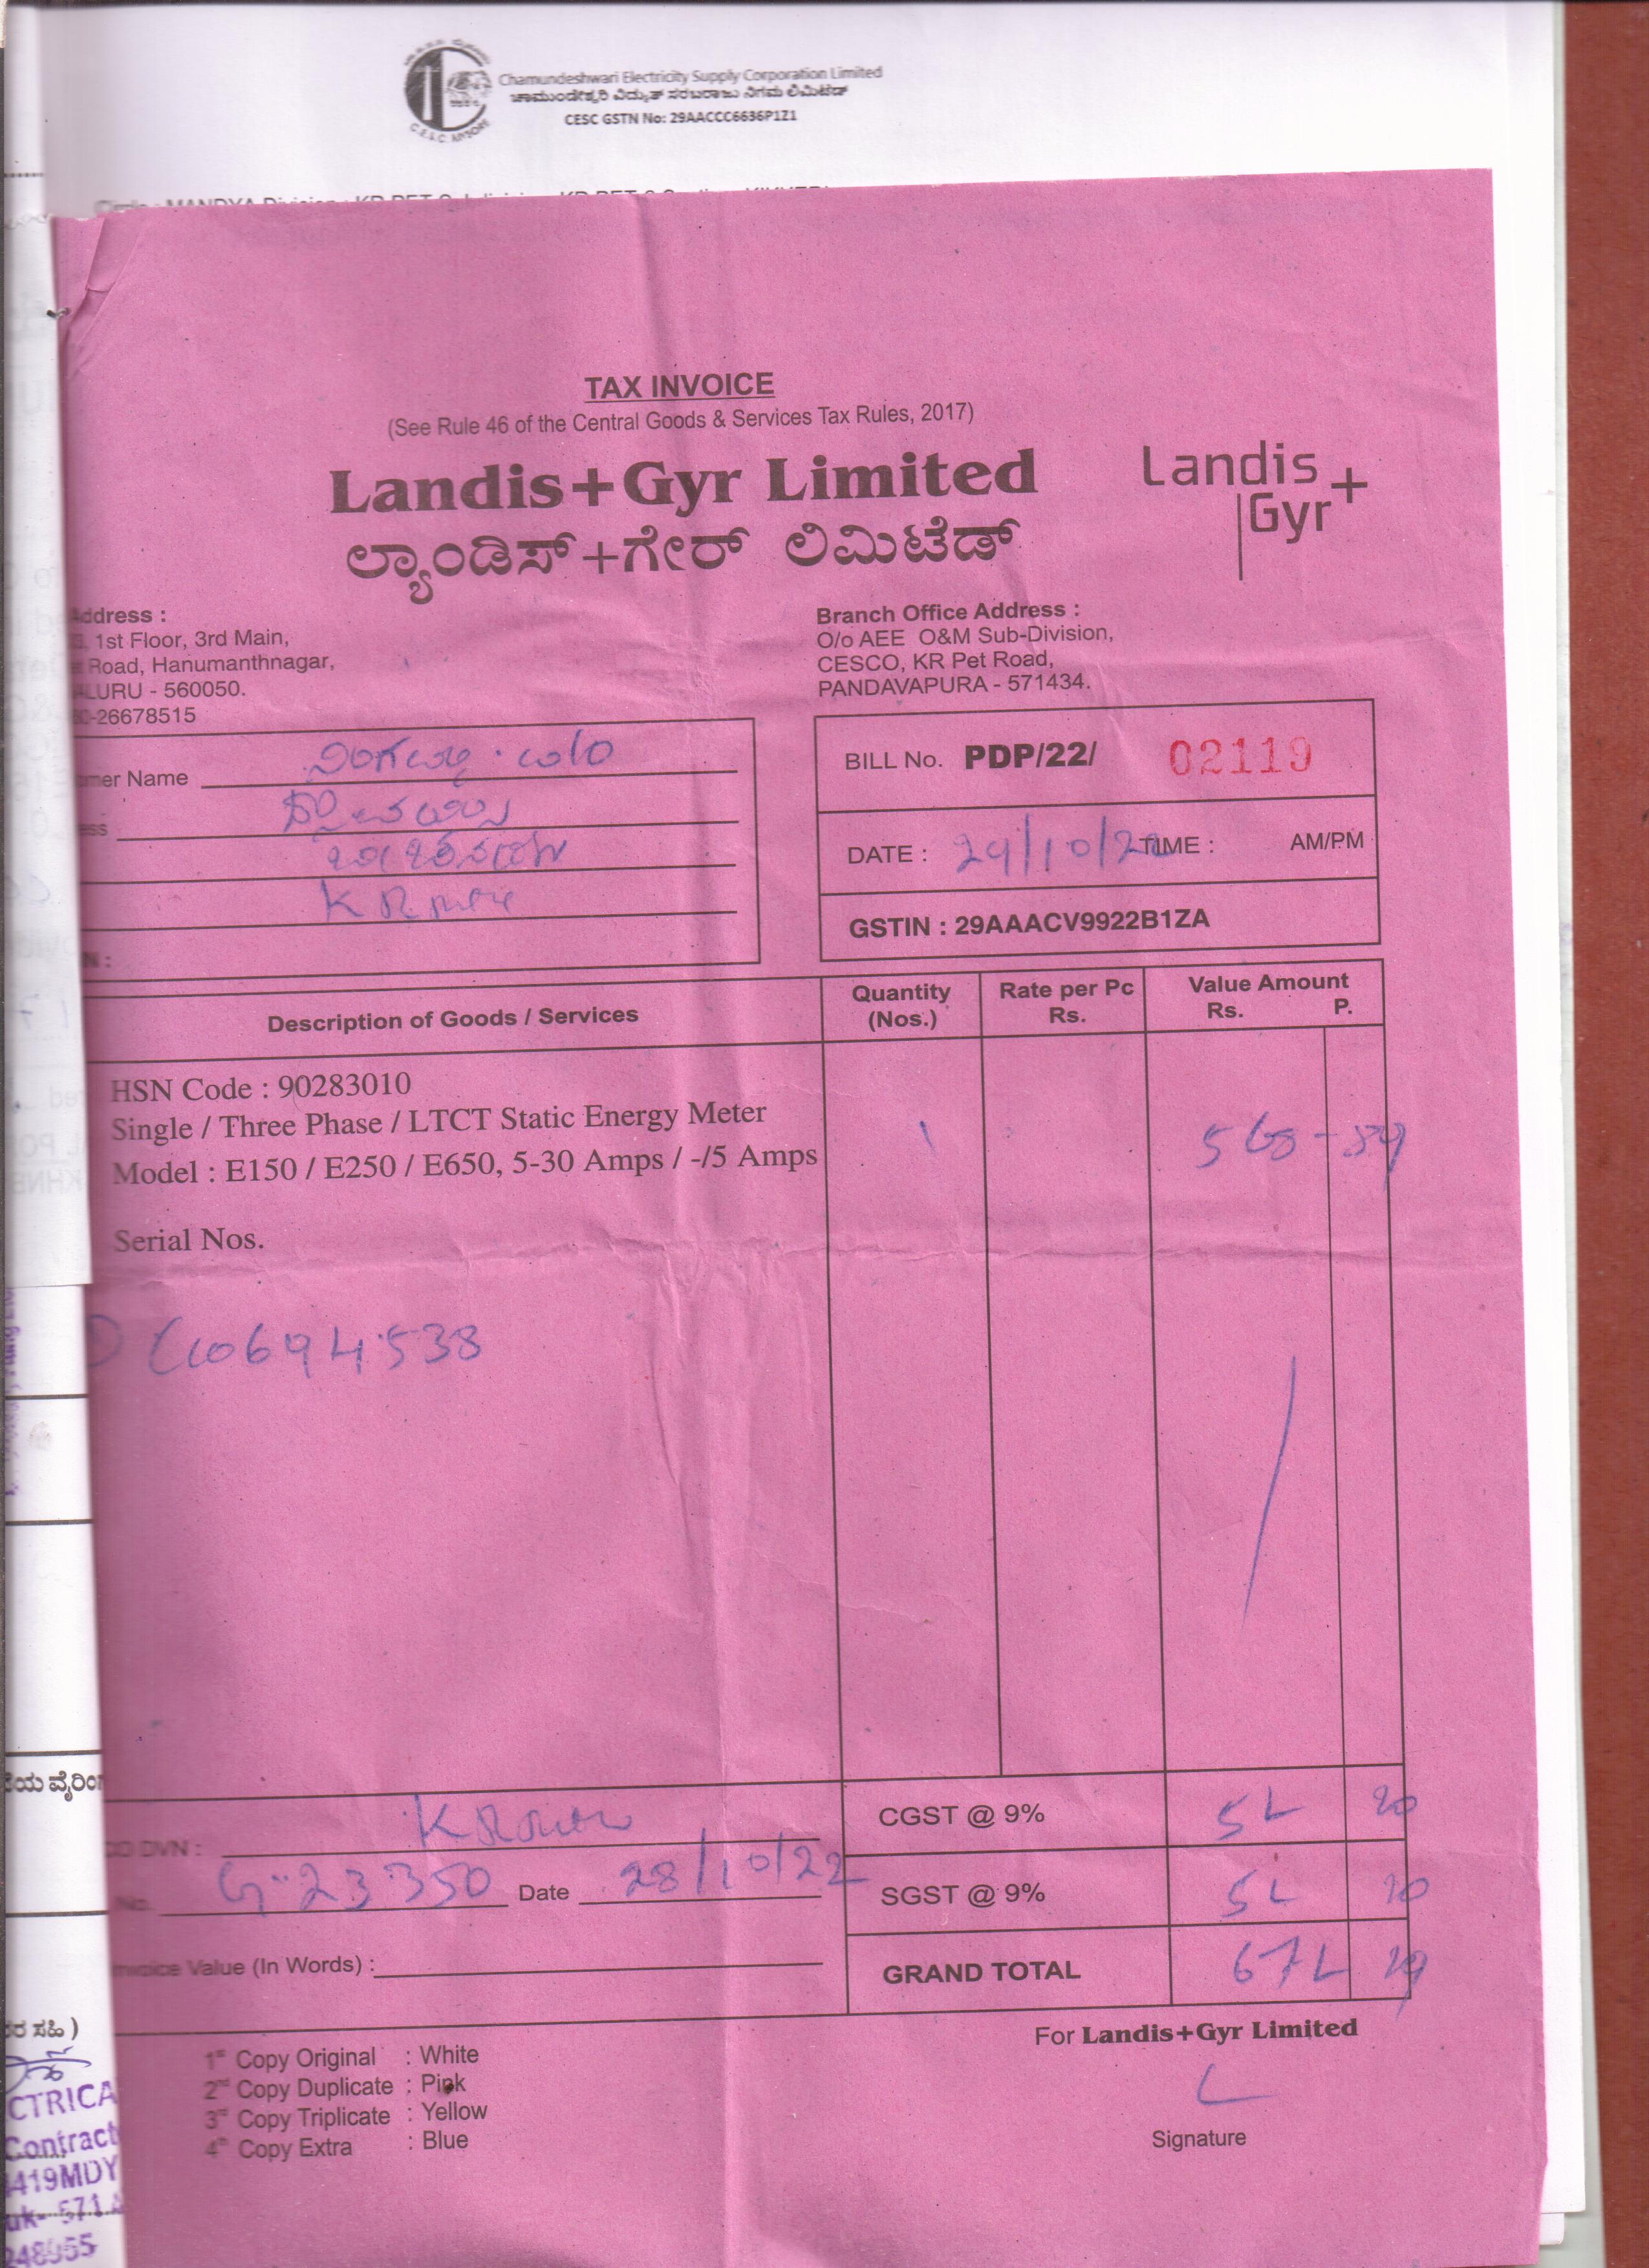 Chamundeshwari Electricity Supply Corporation Limited
ಚಾಮುಂಡೇಶ್ವರಿ ವಿದ್ಯುತ್ ಸರಬರಾಜು ನಿಗಮ ಲಿಮಿಟೆಡ್
CESC GSTN No: 29AACCC6636P1Z1
TAX INVOICE
(See Rule 46 of the Central Goods & Services Tax Rules, 2017)
Landis+Gyr Limited
Landis+
Gyr
ಲ್ಯಾಂಡಿಸ್+ಗೇರ್ ಲಿಮಿಟೆಡ್
Address :
1st Floor, 3rd Main,
Road, Hanumanthnagar,
LURU - 560050.
0-26678515
Branch Office Address :
O/o AEE O&M Sub-Division,
CESCO, KR Pet Road,
PANDAVAPURA - 571434.
mer Name
ess
N :
BILL No. PDP/22/ 02119
DATE : 29/10/22 TIME : AM/PM
GSTIN : 29AAACV9922B1ZA
Description of Goods / Services
Quantity (Nos.)
Rate per Pc Rs.
Value Amount Rs. P.
HSN Code : 90283010
Single / Three Phase / LTCT Static Energy Meter
Model : E150 / E250 / E650, 5-30 Amps / -/5 Amps
1
Serial Nos.
06944538
DVN :
No. G-23350 Date 28/10/22
Invoice Value (In Words) :
CGST @ 9%
SGST @ 9%
GRAND TOTAL
For Landis+Gyr Limited
Signature
1st Copy Original : White
2nd Copy Duplicate : Pink
3rd Copy Triplicate : Yellow
4th Copy Extra : Blue
CTRICA
Contract
419MDY